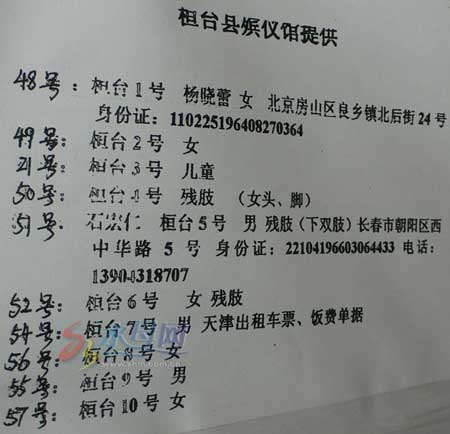 桓台县殡仪馆提供
48号：桓台1号 杨晓蕾 女 北京房山区良乡镇北后街24号
身份证：110225196408270364
49号：桓台2号 女
31号：桓台3号 儿童
50号：桓台4号 残肢 （女头、脚）
51号：石宏仁 桓台5号 男 残肢（下双肢）长春市朝阳区西
中华路 5号 身份证：22104196603064433 电话：
13904318707
52号：桓台6号 女 残肢
54号：桓台7号 男 天津出租车票、饭费单据
56号：桓台8号 女
55号：桓台9号 男
57号：桓台10号 女